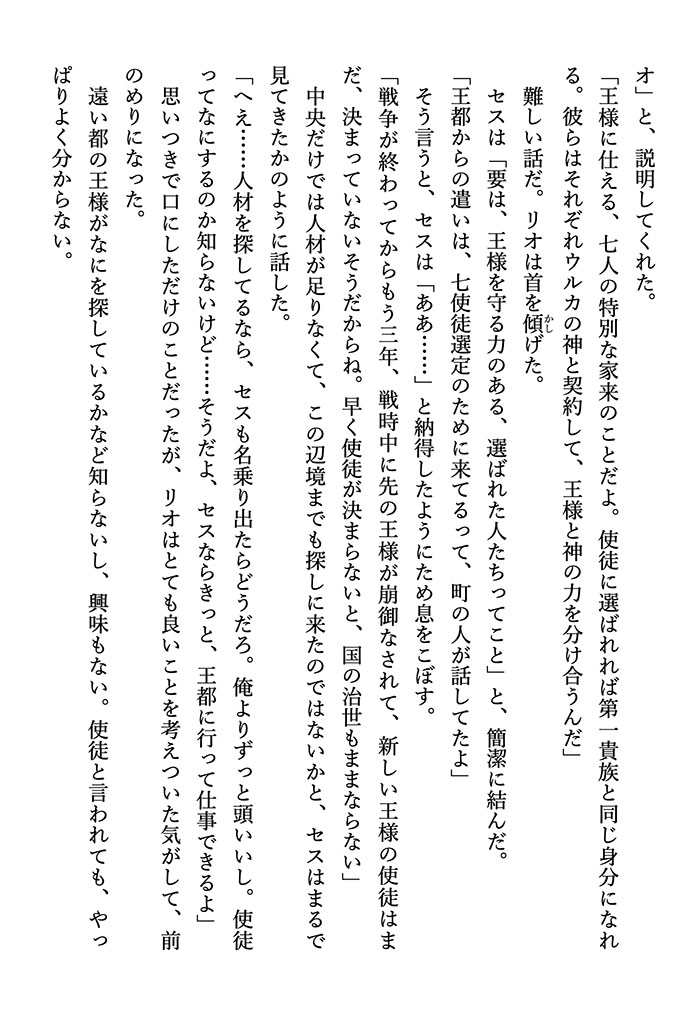 オ」と、説明してくれた。
「王様に仕える、七人の特別な家来のことだよ。使徒に選ばれれば第一貴族と同じ身分になれ
る。彼らはそれぞれウルカの神と契約して、王様と神の力を分け合うんだ」
難しい話だ。リオは首を傾かしげた。
セスは「要は、王様を守る力のある、選ばれた人たちってこと」と、簡潔に結んだ。
「王都からの遣いは、七使徒選定のために来てるって、町の人が話してたよ」
そう言うと、セスは「ああ……」と納得したようにため息をこぼす。
「戦争が終わってからもう三年、戦時中に先の王様が崩御なされて、新しい王様の使徒はま
だ、決まっていないそうだからね。早く使徒が決まらないと、国の治世もままならない」
中央だけでは人材が足りなくて、この辺境までも探しに来たのではないかと、セスはまるで
見てきたかのように話した。
「へえ……人材を探してるなら、セスも名乗り出たらどうだろ。俺よりずっと頭いいし。使徒
ってなにするのか知らないけど……そうだよ、セスならきっと、王都に行って仕事できるよ」
思いつきで口にしただけのことだったが、リオはとても良いことを考えついた気がして、前
のめりになった。
遠い都の王様がなにを探しているかなど知らないし、興味もない。使徒と言われても、やっ
ぱりよく分からない。